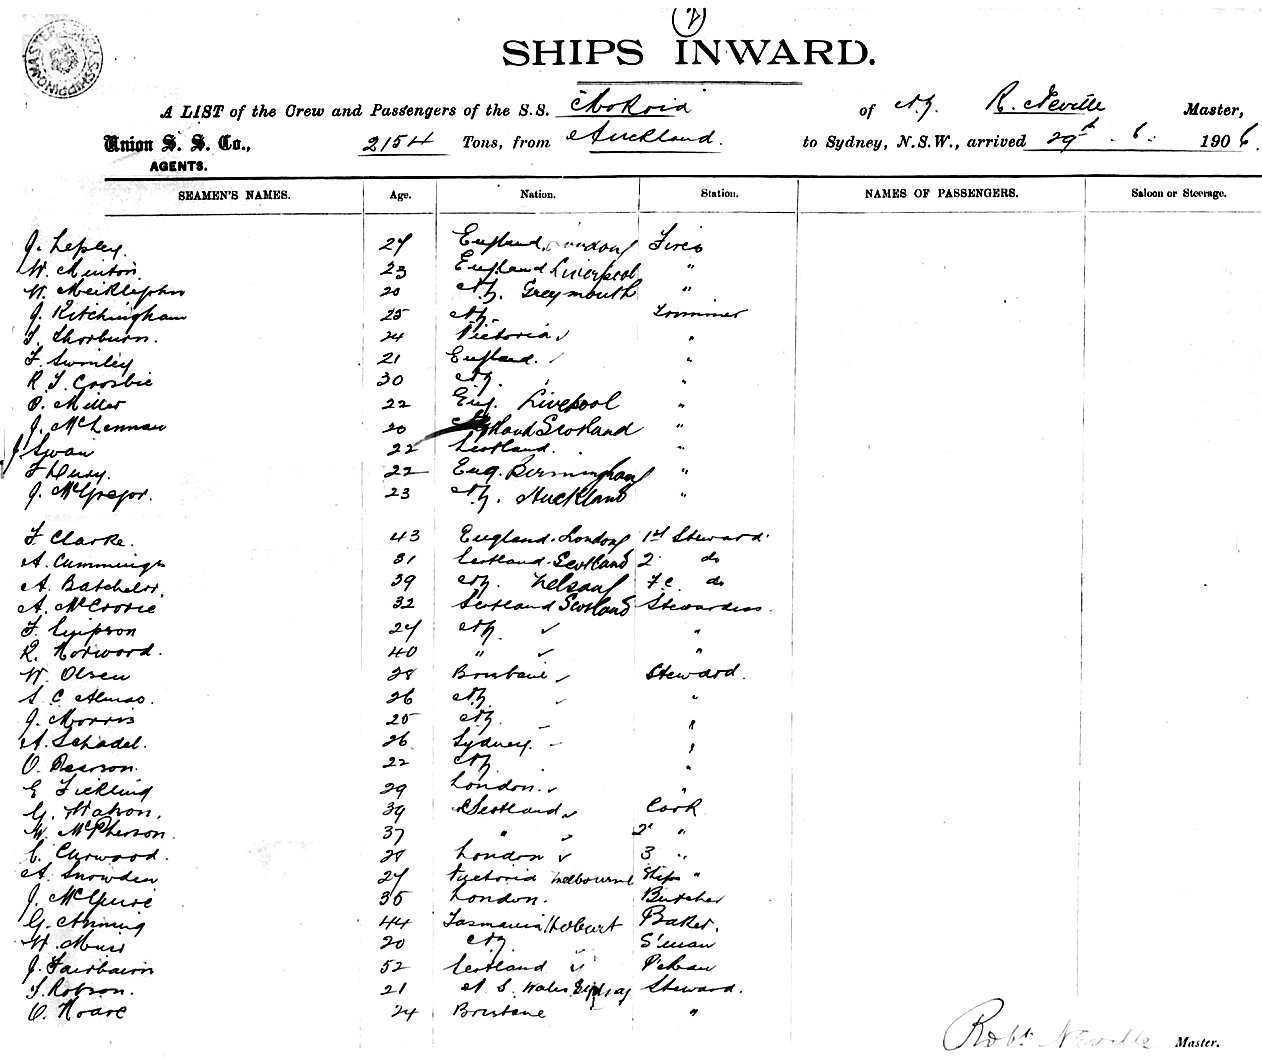 (2)
SHIPS INWARD.
A LIST of the Crew and Passengers of the S.S. Mokoia of N.Z. R. Neville Master,
Union S. S. Co., 2154 Tons, from Auckland. to Sydney, N.S.W., arrived 29th . 6. 1906.
AGENTS.
SEAMEN'S NAMES. Age. Nation. Station. NAMES OF PASSENGERS. Saloon or Steerage.
J. Lepley. 27 England, London Fires
W. Minton. 23 England Liverpool "
W. Meiklejohn 20 N.Z. Greymouth "
J. Kitchingham 25 N.Z. Trimmer
T. Thorburn. 24 Victoria "
F. Swinley 21 England. "
R. J. Crosbie 30 N.Z. "
O. Miller 22 Eng. Liverpool "
J. McLennan 20 Scotland "
J Swan 22 Scotland. "
F 22 Eng. Birmingham "
J. McGregor. 23 N.Z. Auckland "
F Clarke. 43 England. London 1st Steward.
A. Cummings 31 Scotland. Scotland 2 do
A. Batchelor. 39 N.Z. Nelson F.C. do
A. McCrorie 32 Scotland Scotland Stewardess.
F. Simpson 27 N.Z. "
R. Norwood. 40 " "
W. Olsen 28 Brisbane Steward.
S. C. 26 N.Z. "
J. Morris 25 N.Z. "
A. Schadel. 26 Sydney. "
O. Pearson. 22 N.Z. "
E Fickling 29 London. "
G. Watson. 39 Scotland Cook
W. McPherson. 37 " 2 "
C. Curwood. 28 London 3 "
A. Snowden 27 Victoria Melbourne Ships "
J. McGuire 35 London. Butcher
G. Anning 44 Tasmania Hobart Baker.
W. Muir 20 N.Z. S'man
J. Fairbairn 52 Scotland
T. Robson. 21 N. S. Wales Sydney Steward.
O. Hoare 24 Brisbane "
Robt Neville Master.